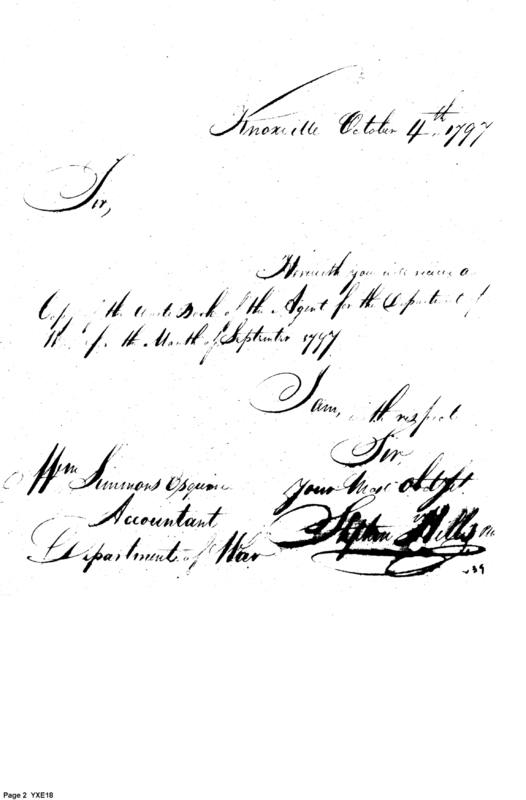 Knoxville October 4th. 1797
Sir,
Herewith you will receive a
Copy of the Waste Book of the Agent for the Department of
War for the Month of September 1797
I am, with respect
Sir,
Wm Simmons Esquire
Your Most Obdt Sert
Accountant
Stephen Hillis
Department of War
39
Page 2 YXE18